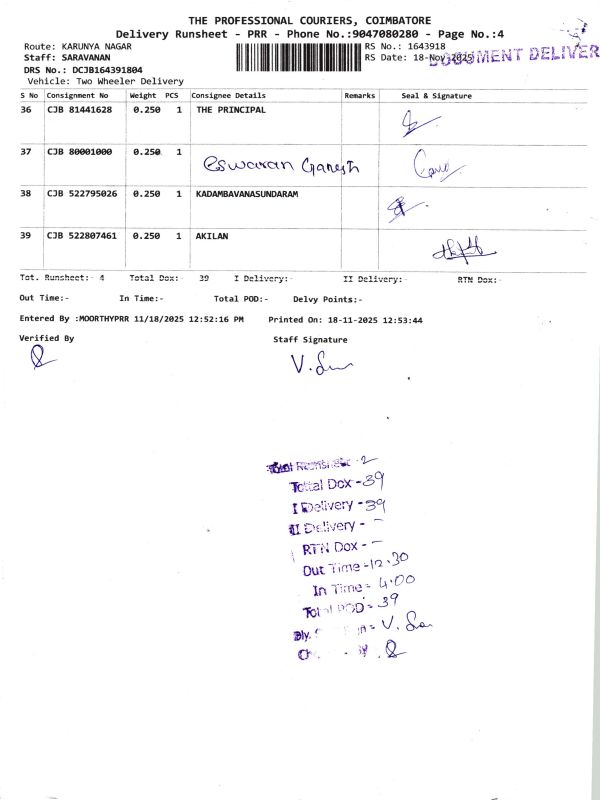 THE PROFESSIONAL COURIERS, COIMBATORE
Delivery Runsheet - PRR - Phone No.:9047080280 - Page No.:4
Route: KARUNYA NAGAR
RS No.: 1643918
Staff: SARAVANAN
RS Date: 18-Nov-2025
DOCUMENT DELIVER
DRS No.: DCJB164391804
Vehicle: Two Wheeler Delivery
S No Consignment No Weight PCS Consignee Details Remarks Seal & Signature
36 CJB 81441628 0.250 1 THE PRINCIPAL
37 CJB 80001000 0.250 1 Eswaran Ganesh
38 CJB 522795026 0.250 1 KADAMBAVANASUNDARAM
39 CJB 522807461 0.250 1 AKILAN
Tot. Runsheet:- 4 Total Dox:- 39 I Delivery:- II Delivery:- RTN Dox:-
Out Time:- In Time:- Total POD:- Delvy Points:-
Entered By :MOORTHYPRR 11/18/2025 12:52:16 PM Printed On: 18-11-2025 12:53:44
Verified By Staff Signature
Total Runsheet - 2
Tottal Dox - 39
I Delivery - 39
II Delivery - -
RTN Dox - -
Out Time - 12.30
In Time - 4.00
Total POD - 39
Dly.